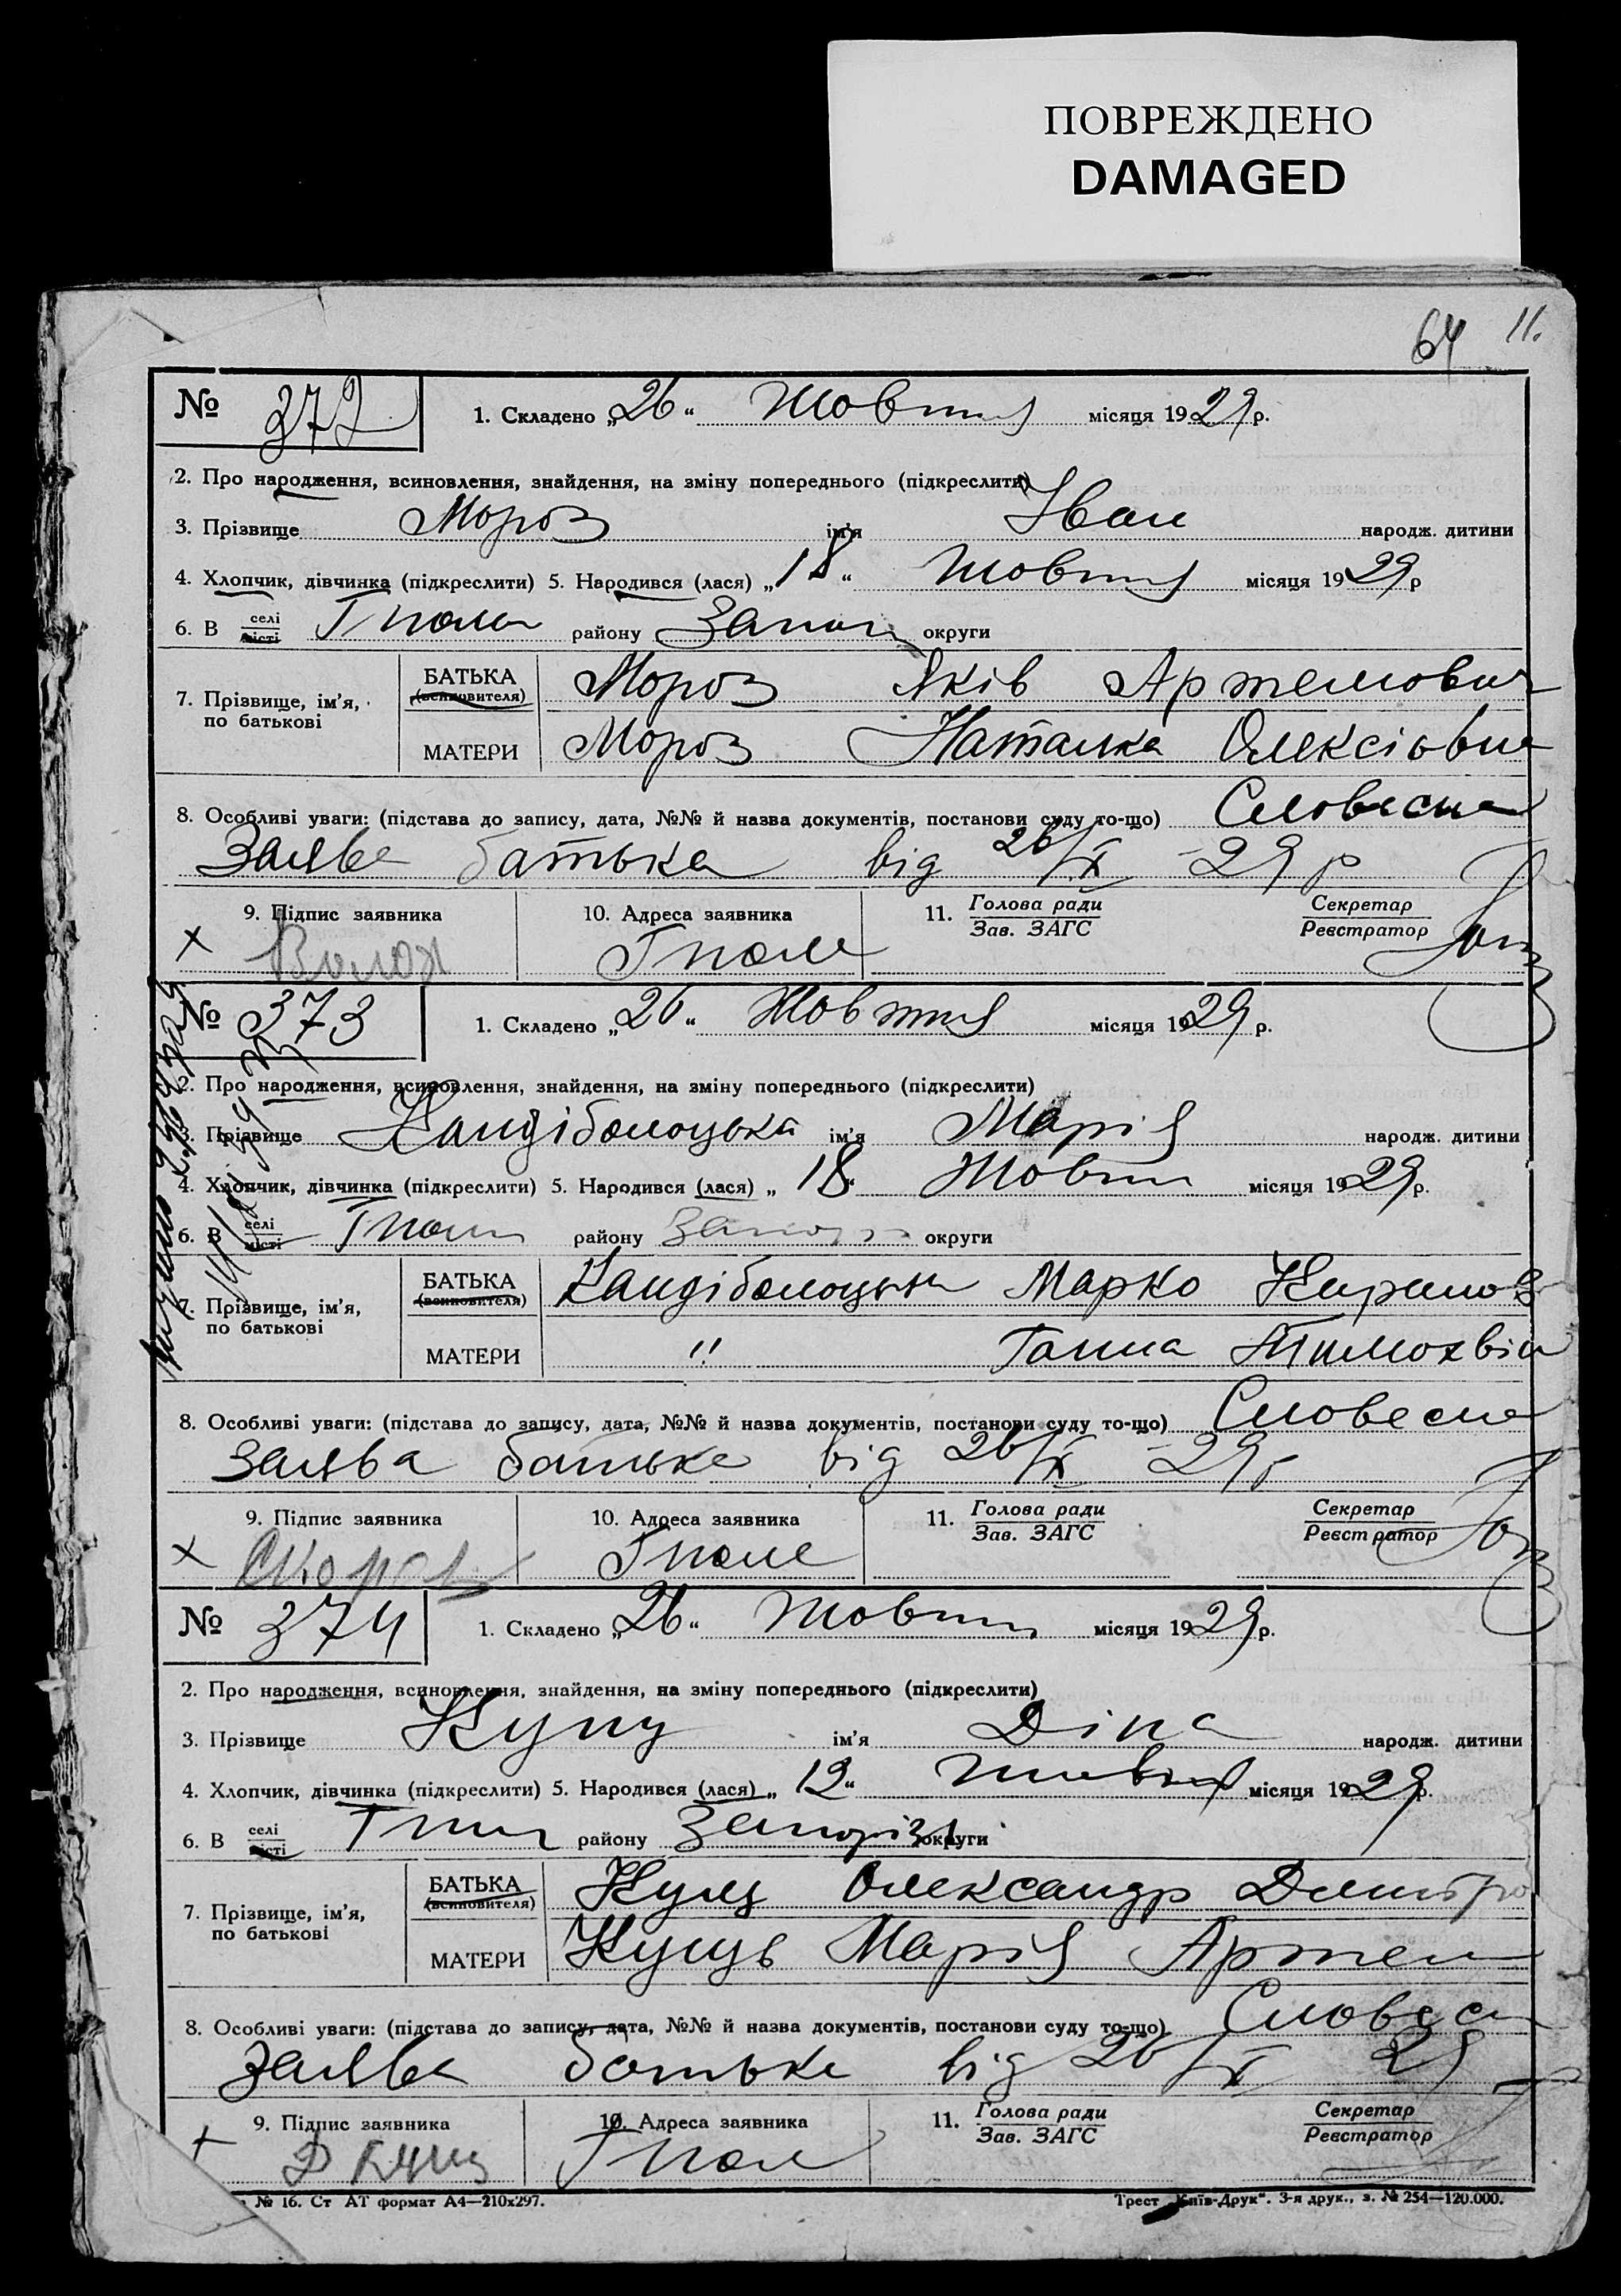 ПОВРЕЖДЕНО
DAMAGED
64 11.
№ 372 1. Складено „26“ Жовтня місяця 1929 р.
2. Про народження, всиновлення, знайдення, на зміну попереднього (підкреслити)
3. Прізвище Мороз ім'я Іван народж. дитини
4. Хлопчик, дівчинка (підкреслити) 5. Народився (лася) „18“ Жовтня місяця 1929 р
6. В селі місті Гполе району Запоріз округи
7. Прізвище, ім'я, по батькові
БАТЬКА (всиновителя) Мороз Яків Артемович
МАТЕРИ Мороз Наталка Олексіовна
8. Особливі уваги: (підстава до запису, дата, №№ й назва документів, постанови суду то-що) Словесна
Заява батька від 26/X -29 р
9. Підпис заявника 10. Адреса заявника 11. Голова ради Зав. ЗАГС Секретар Реєстратор
× Гполе
№ 373 1. Складено „26“ Жовтня місяця 1929 р.
2. Про народження, всиновлення, знайдення, на зміну попереднього (підкреслити)
3. Прізвище Кандіболоцька ім'я Марія народж. дитини
4. Хлопчик, дівчинка (підкреслити) 5. Народився (лася) „18“ Жовтн місяця 1929 р.
6. В селі місті Гполе району Запоріз округи
7. Прізвище, ім'я, по батькові
БАТЬКА (всиновителя) Кандіболоцьки Марко Кирилов
МАТЕРИ " Ганна Тимохвіи
8. Особливі уваги: (підстава до запису, дата, №№ й назва документів, постанови суду то-що) Словесна
Заява батька від 26/X -29 р
9. Підпис заявника 10. Адреса заявника 11. Голова ради Зав. ЗАГС Секретар Реєстратор
× Гполе
№ 374 1. Складено „26“ Жовтня місяця 1929 р.
2. Про народження, всиновлення, знайдення, на зміну попереднього (підкреслити)
3. Прізвище Кущ ім'я Діна народж. дитини
4. Хлопчик, дівчинка (підкреслити) 5. Народився (лася) „12“ Жовтня місяця 1929 р.
6. В селі місті Гполе району Запоріз округи
7. Прізвище, ім'я, по батькові
БАТЬКА (всиновителя) Кущ Олександр Дмитро
МАТЕРИ Кущь Марія Артем
8. Особливі уваги: (підстава до запису, дата, №№ й назва документів, постанови суду то-що) Словесн
Заява батька від 26/X 29
9. Підпис заявника 10. Адреса заявника 11. Голова ради Зав. ЗАГС Секретар Реєстратор
+ Кущ Гполе
№ 16. Ст АТ формат А4—210x297. Трест „Київ-Друк“. 3-я друк., з. № 254—120.000.